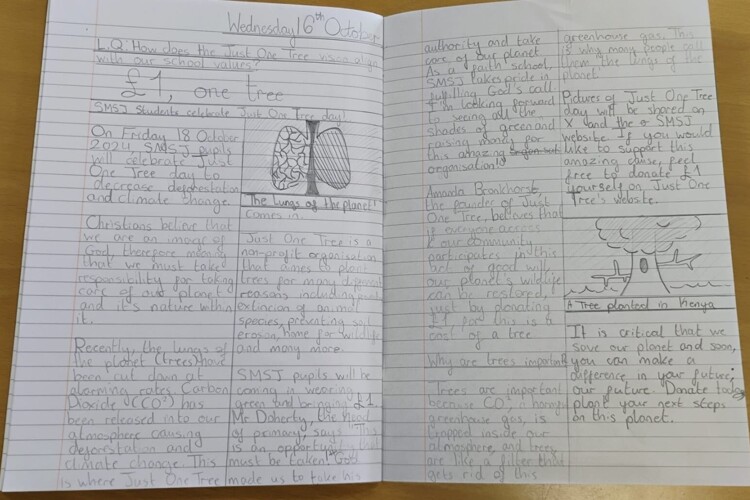 Wednesday 16th October
L.Q: How does the Just One Tree vision align
with our school values?
£1, one tree
SMSJ Students celebrate Just One Tree day!
On Friday 18 October
2024, SMSJ pupils
will celebrate Just
One Tree day to
decrease deforestation
and climate change.
Christians believe that
we are an image of
God, therefore meaning
that we must take
responsibility for taking
care of our planet
and it's nature within
it.
Recently, the lungs of
the planet (trees) have
been cut down at
alarming rates. Carbon
Dioxide (CO²) has
been released into our
atmosphere causing
deforestation and
climate change. This
is where Just One Tree
The lungs of the planet!
comes in.
Just One Tree is a
non-profit organisation
that aimes to plant
trees for many different
reasons including
extincion of animal
species, preventing soil
erosion, home for wildlife
and many more.
SMSJ pupils will be
coming in wearing
green and bringing £1.
Mr Doherty, the head
of primary, says "This
is an opportunity that
must be taken. God
made us to take his
authority and take
care of our planet
As a faith school,
SMSJ takes pride in
fulfilling God's call
I'm looking forward
to seeing all the
shades of green and
raising money for
this amazing
organisation!"
Amanda Bronkhorst,
the founder of Just
One Tree, believes that
if everyone across
our community
participates in this
act of good will,
our planet's wildlife
can be restored,
just by donating
£1 for this is a
cost of a tree
Why are trees important
Trees are important
because CO², a
greenhouse gas, is
trapped inside our
atmosphere and trees
are like a filter that
gets rid of this
greenhouse gas. This
is why many people call
them the lungs of the
planet
Pictures of Just One Tree
day will be shared on
X and the SMSJ
website. If you would
like to support this
amazing cause, feel
free to donate £1
yourself on Just One
Tree's website.
A Tree planted in Kenya
It is critical that we
save our planet and soon,
you can make a
difference in your future,
our future. Donate today
plant your next steps
on this planet.